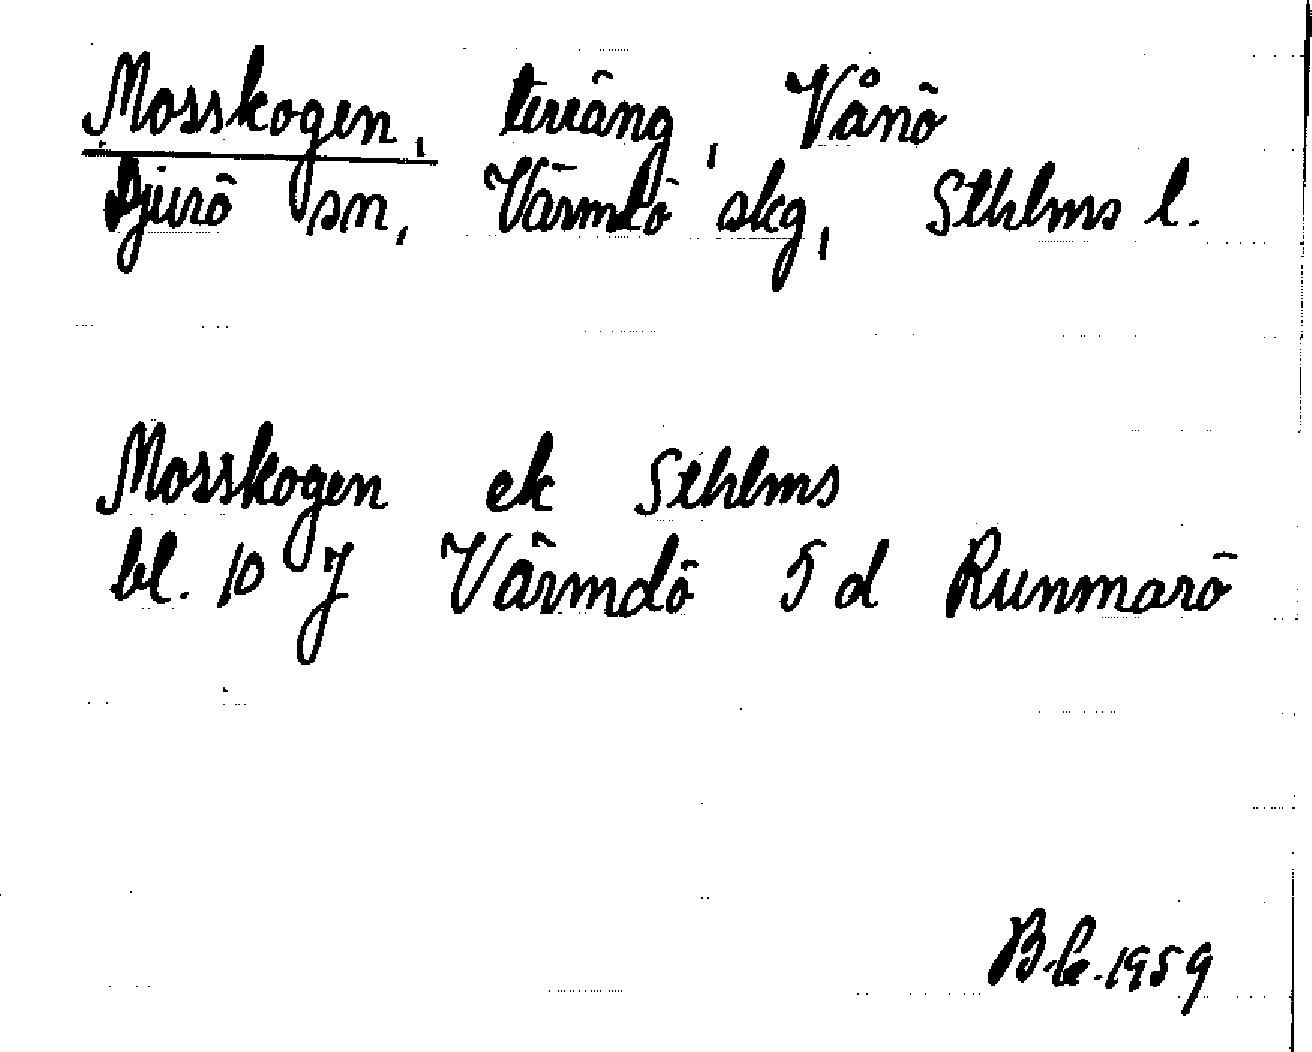 Mosskogen, terräng, Vånö
Djurö sn, Värmdö skg, Sthlms l.
Mosskogen ek Sthlms
bl. 10 J Värmdö 5 d Runmarö
1959